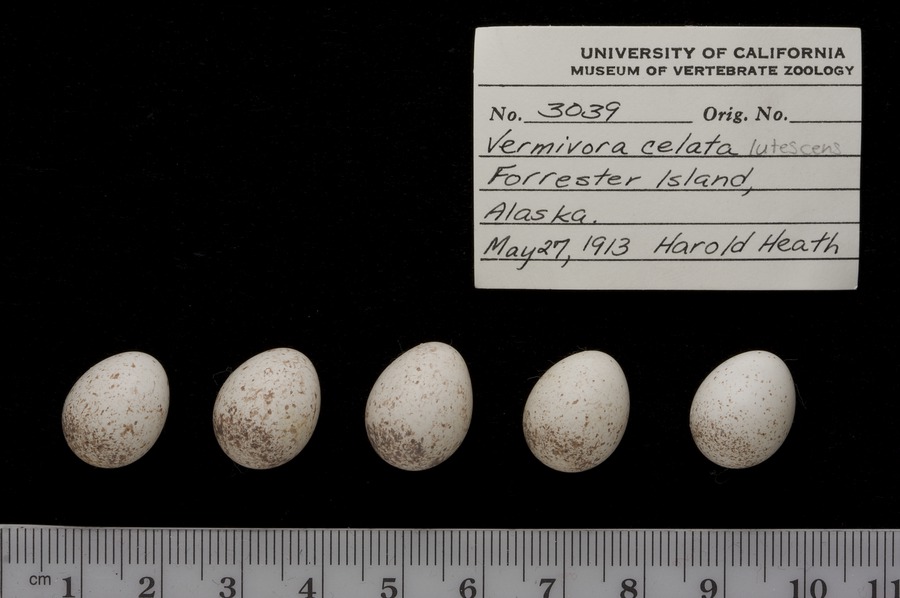 UNIVERSITY OF CALIFORNIA
MUSEUM OF VERTEBRATE ZOOLOGY
No. 3039 Orig. No.
Vermivora celata lutescens
Forrester Island,
Alaska.
May 27, 1913 Harold Heath
cm 1 2 3 4 5 6 7 8 9 10 11